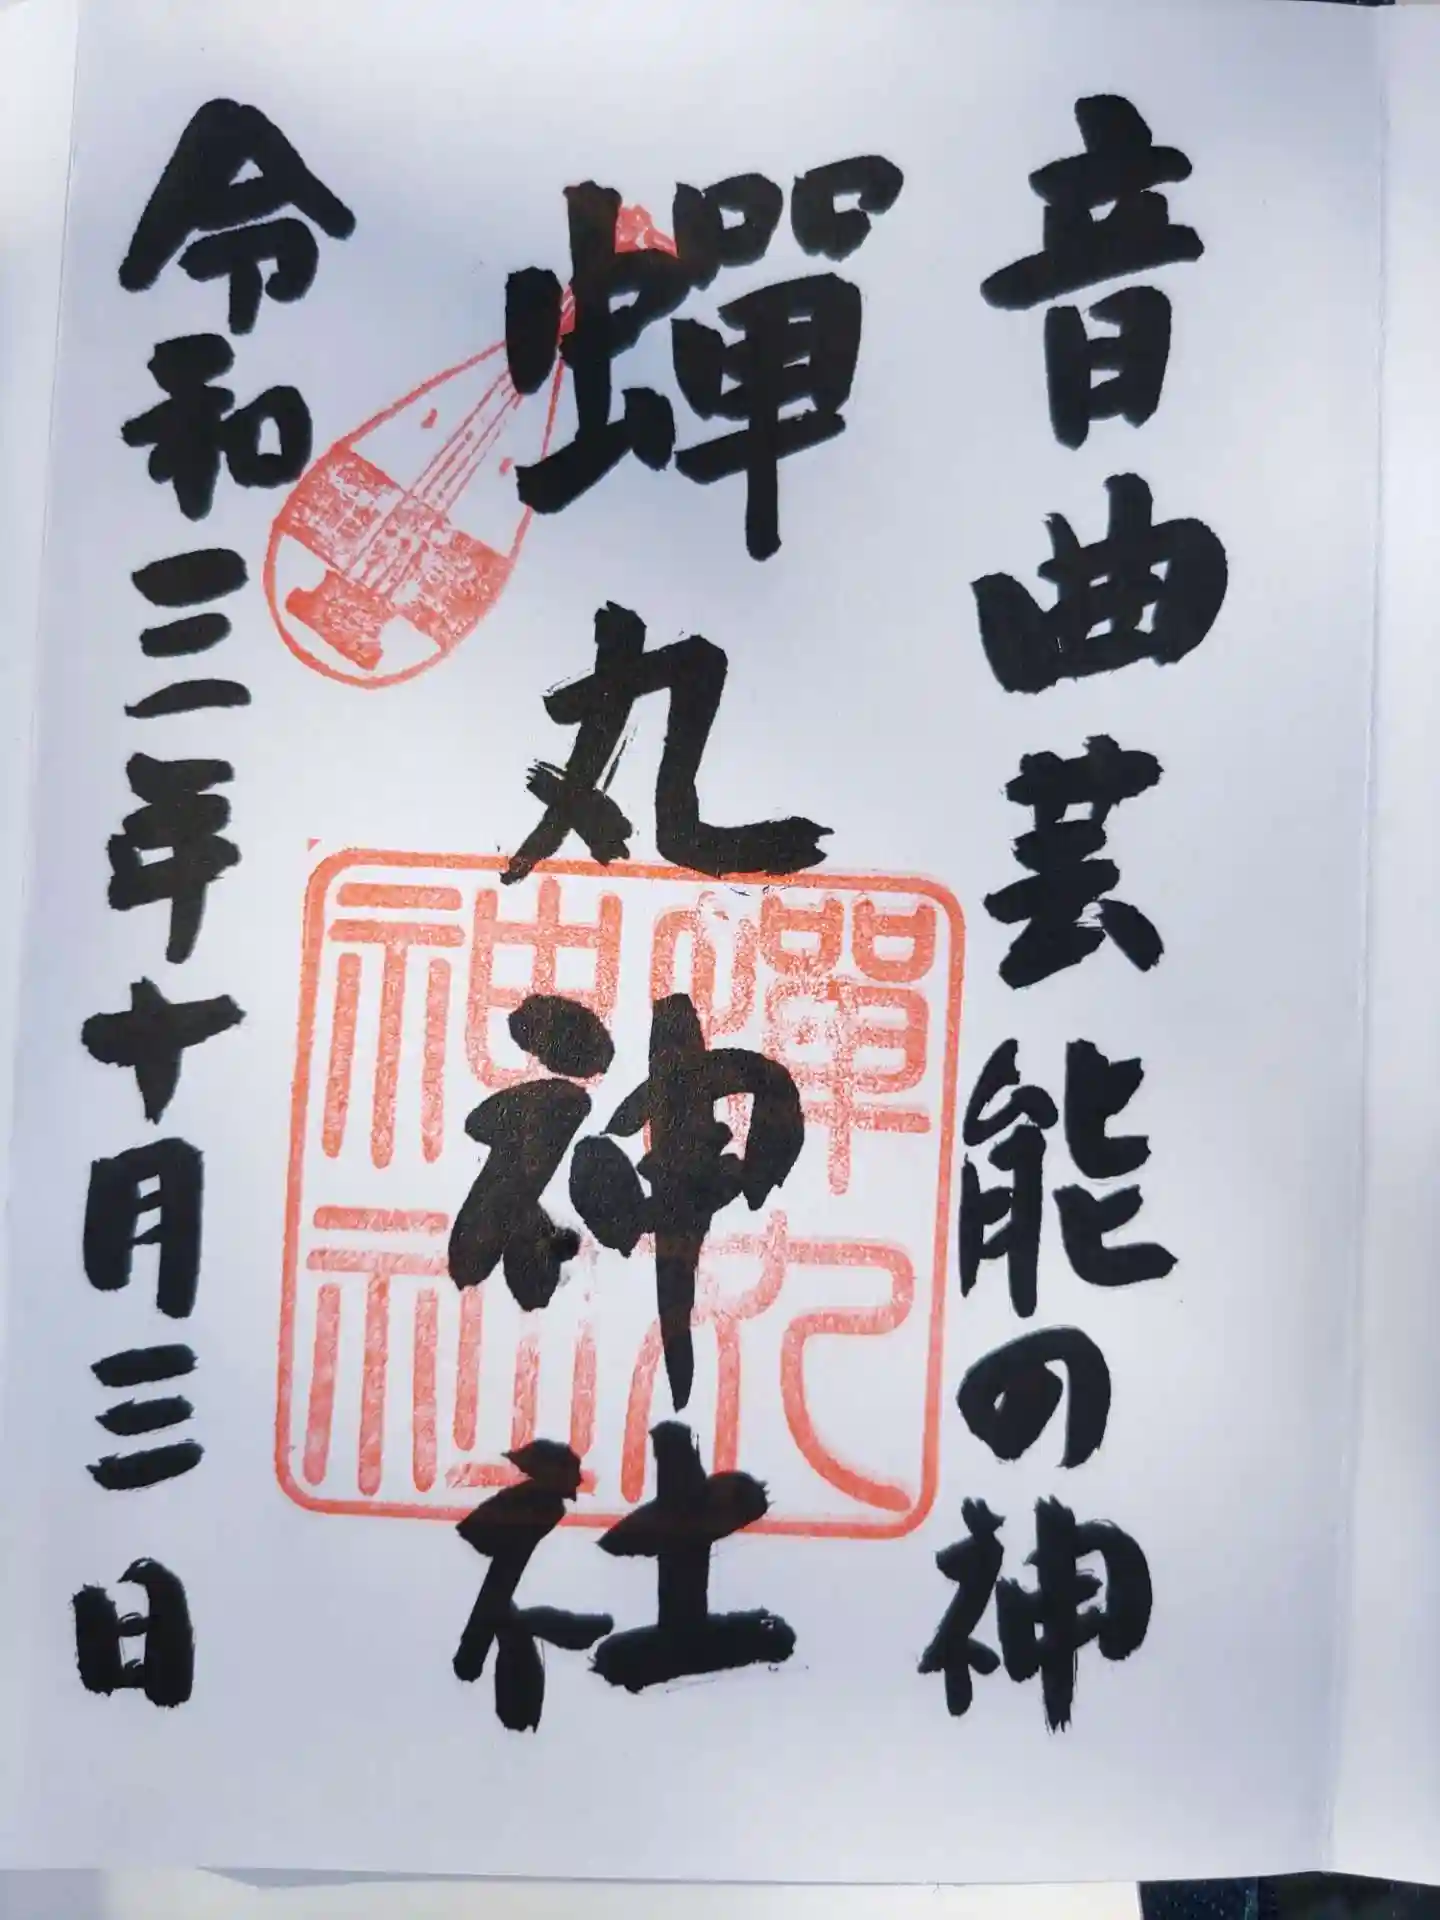 音曲芸能の神
蝉丸神社
令和三年十月三日
蝉丸
神社